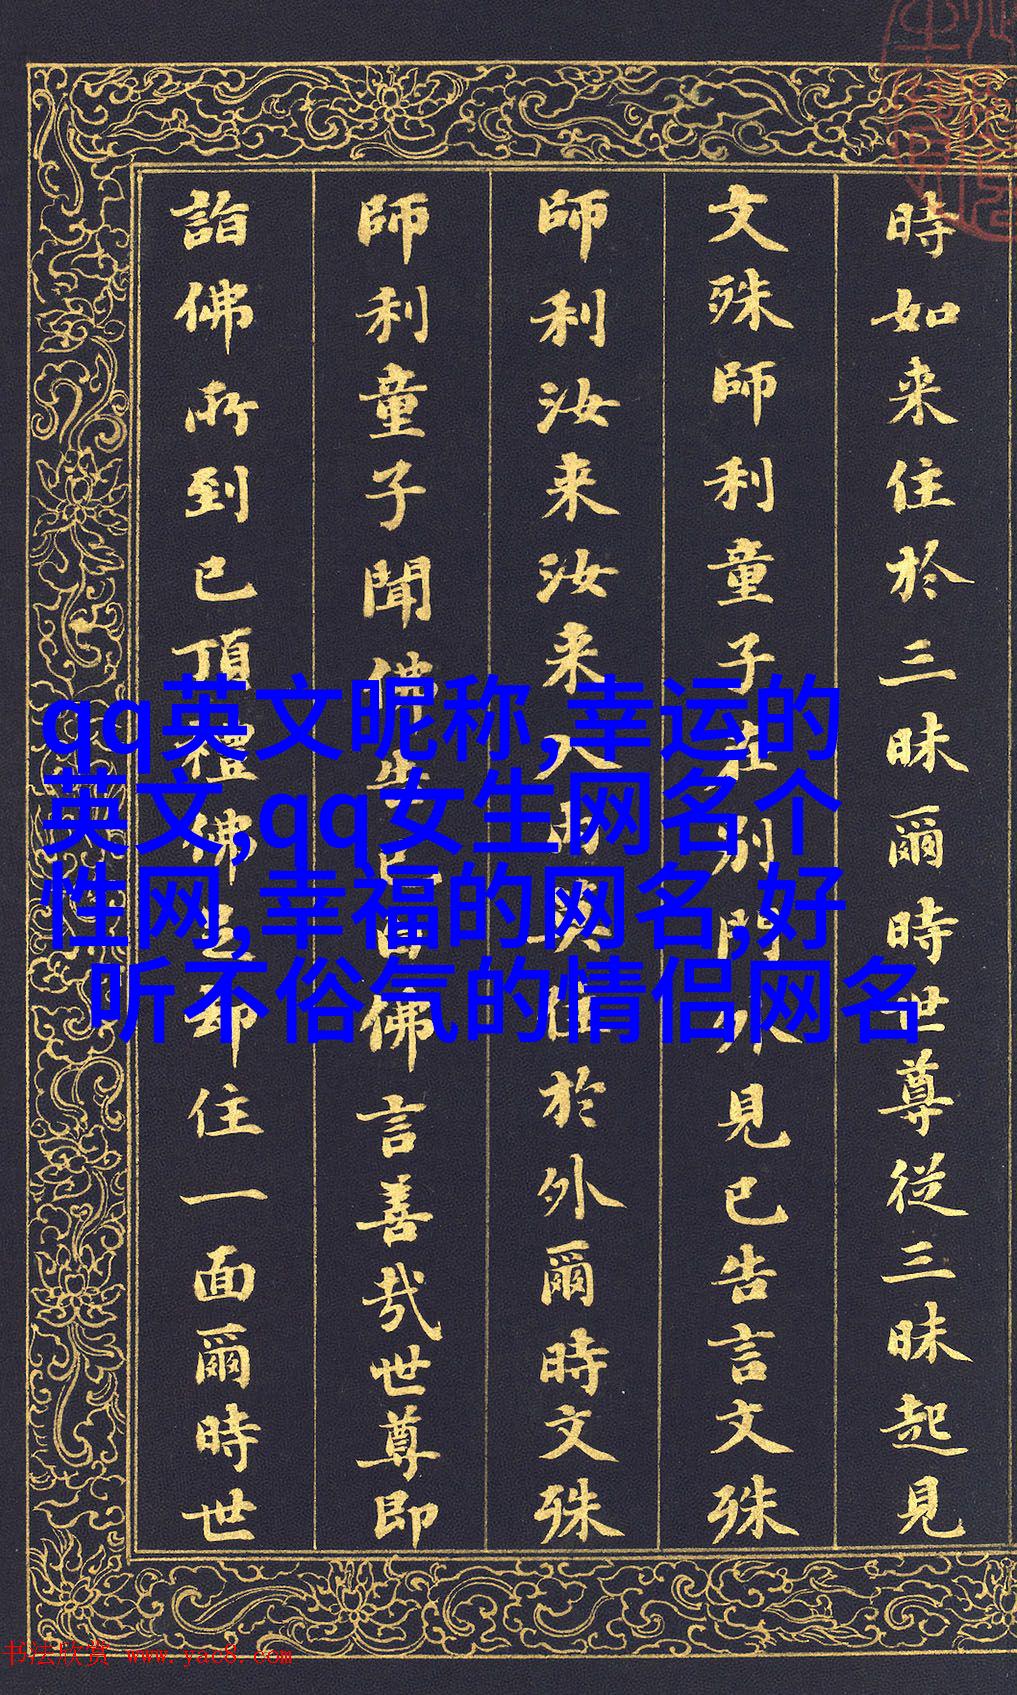 時如来住於三昧爾時世尊從三昧起見
文殊師利童子住別門外見已告言文殊
師利汝来汝来入内莫住於外爾時文殊
師利童子聞佛告已白佛言善哉世尊即
詣佛所到已頂禮佛足却住一面爾時世
qq英文昵称,幸运的
英文,qq女生网名个
性网,幸福的网名,好
听不俗气的情侣网名
书法欣赏 www.yac8.com